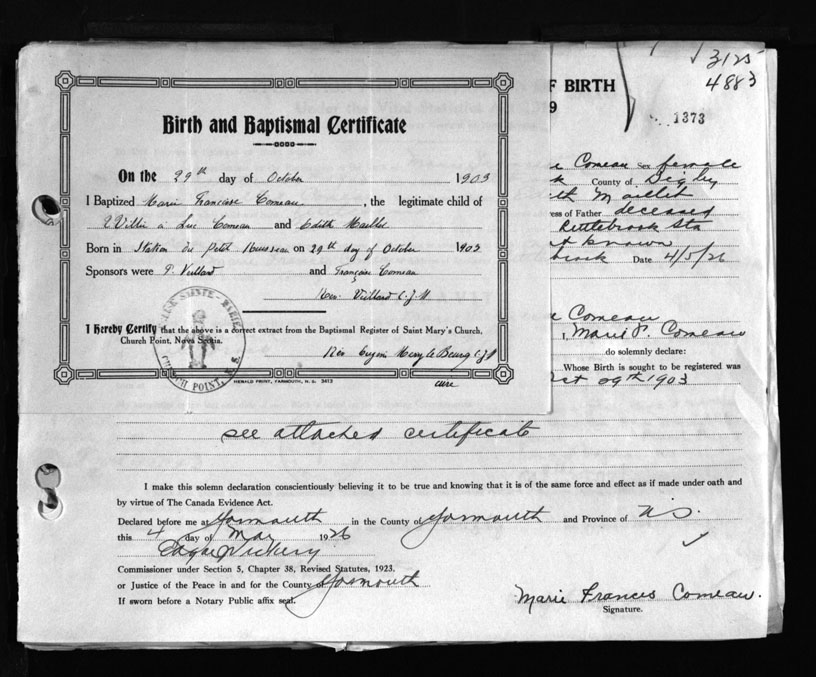 Birth and Baptismal Certificate
On the 29th day of October 1903
I Baptized Marie Françoise Comeau, the legitimate child of
Willie à Luc Comeau and Edith Maillet
Born in Station du Petit Ruisseau on 29th day of October 1903
Sponsors were P. Veillard and Françoise Comeau
Rev. Veillard C.J.M.
I Hereby Certify that the above is a correct extract from the Baptismal Register of Saint Mary's Church,
Church Point, Nova Scotia.
Rev. Eugène Mary Le C.J.M
curé
SAINTE-MARIE
CHURCH POINT, N.S.
HERALD PRINT, YARMOUTH, N. S. 3413
3125
4883
F BIRTH
9
1373
e Comeau Sex female
County of Digby
ith Maillet
ess of Father deceased
Littlebrook Sta
t known
brook Date 4/5/26
e Comeau
, Marie F. Comeau
do solemnly declare:
Whose Birth is sought to be registered was
ct 29th 1903
see attached certificate
I make this solemn declaration conscientiously believing it to be true and knowing that it is of the same force and effect as if made under oath and
by virtue of The Canada Evidence Act.
Declared before me at Yarmouth in the County of Yarmouth and Province of N.S.
this 4 day of May 1926
Edgar Vickery
Commissioner under Section 5, Chapter 38, Revised Statutes, 1923.
or Justice of the Peace in and for the County of Yarmouth
If sworn before a Notary Public affix seal.
Marie Frances Comeau.
Signature.